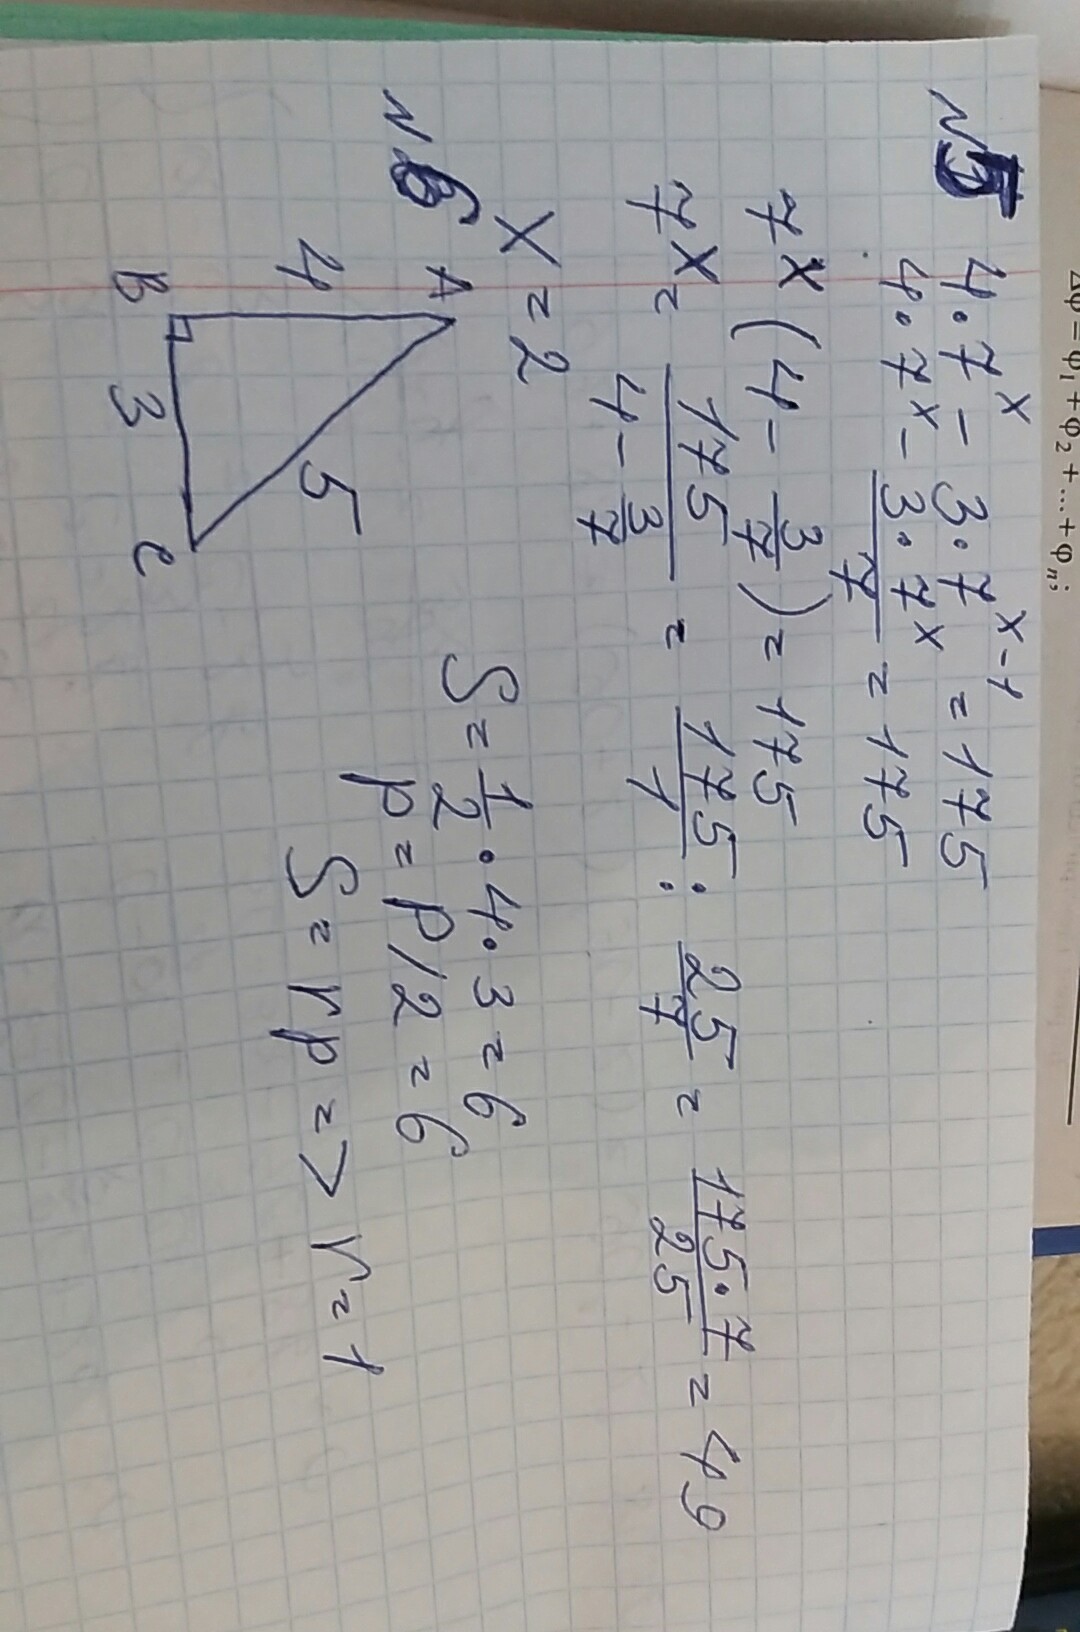 Δφ = φ₁ + φ₂ + ... + φₙ;
№5 4·7^x − 3·7^(x−1) = 175
4·7^x − (3·7^x)/7 = 175
7^x (4 − 3/7) = 175
7^x = 175/(4 − 3/7) = 175/1 : 25/7 = (175·7)/25 = 49
x = 2
№6
A
4
5
B
3
C
S = 1/2 · 4 · 3 = 6
p = P/2 = 6
S = rp => r = 1